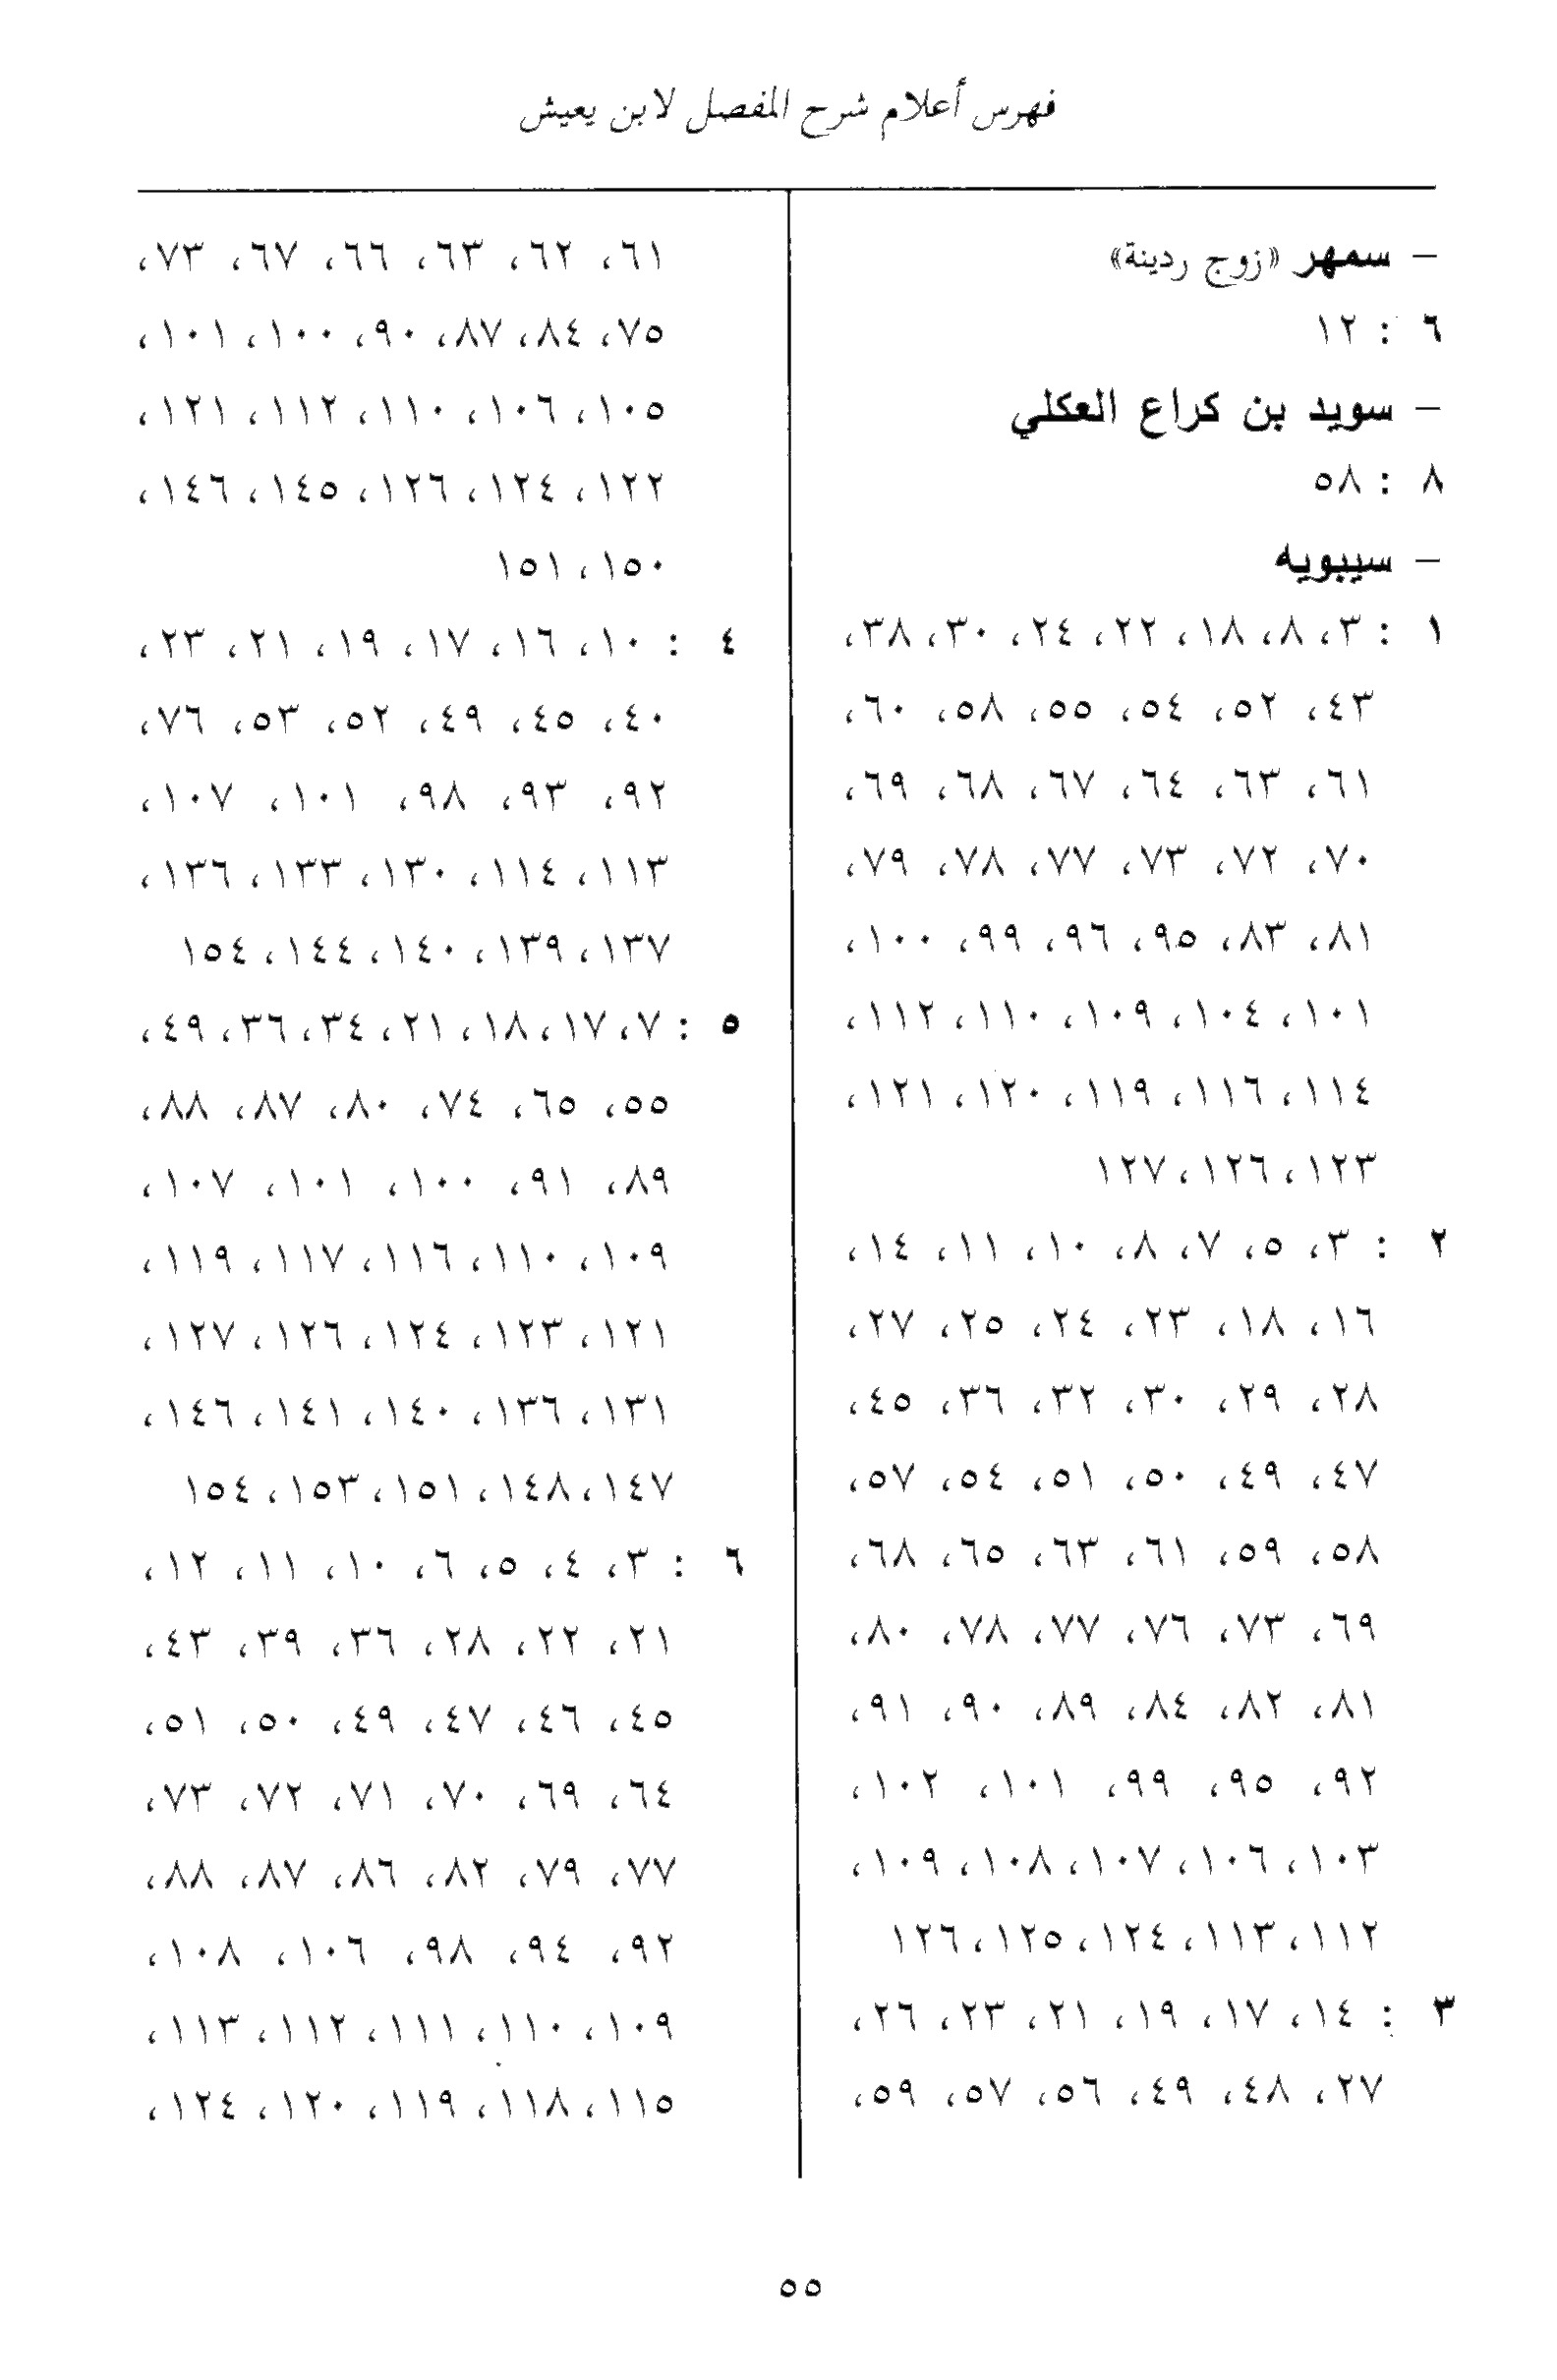 فهرس أعلام شرح المفصل لابن يعيش
– سمهر «زوج ردينة»
٦ : ١٢
– سويد بن كراع العكلي
٨ : ٥٨
– سيبويه
١ : ٣، ٨، ١٨، ٢٢، ٢٤، ٣٠، ٣٨،
٤٣، ٥٢، ٥٤، ٥٥، ٥٨، ٦٠،
٦١، ٦٣، ٦٤، ٦٧، ٦٨، ٦٩،
٧٠، ٧٢، ٧٣، ٧٧، ٧٨، ٧٩،
٨١، ٨٣، ٩٥، ٩٦، ٩٩، ١٠٠،
١٠١، ١٠٤، ١٠٩، ١١٠، ١١٢،
١١٤، ١١٦، ١١٩، ١٢٠، ١٢١،
١٢٣، ١٢٦، ١٢٧
٢ : ٣، ٥، ٧، ٨، ١٠، ١١، ١٤،
١٦، ١٨، ٢٣، ٢٤، ٢٥، ٢٧،
٢٨، ٢٩، ٣٠، ٣٢، ٣٦، ٤٥،
٤٧، ٤٩، ٥٠، ٥١، ٥٤، ٥٧،
٥٨، ٥٩، ٦١، ٦٣، ٦٥، ٦٨،
٦٩، ٧٣، ٧٦، ٧٧، ٧٨، ٨٠،
٨١، ٨٢، ٨٤، ٨٩، ٩٠، ٩١،
٩٢، ٩٥، ٩٩، ١٠١، ١٠٢،
١٠٣، ١٠٦، ١٠٧، ١٠٨، ١٠٩،
١١٢، ١١٣، ١٢٤، ١٢٥، ١٢٦
٣ : ١٤، ١٧، ١٩، ٢١، ٢٣، ٢٦،
٢٧، ٤٨، ٤٩، ٥٦، ٥٧، ٥٩،
٦١، ٦٢، ٦٣، ٦٦، ٦٧، ٧٣،
٧٥، ٨٤، ٨٧، ٩٠، ١٠٠، ١٠١،
١٠٥، ١٠٦، ١١٠، ١١٢، ١٢١،
١٢٢، ١٢٤، ١٢٦، ١٤٥، ١٤٦،
١٥٠، ١٥١
٤ : ١٠، ١٦، ١٧، ١٩، ٢١، ٢٣،
٤٠، ٤٥، ٤٩، ٥٢، ٥٣، ٧٦،
٩٢، ٩٣، ٩٨، ١٠١، ١٠٧،
١١٣، ١١٤، ١٣٠، ١٣٣، ١٣٦،
١٣٧، ١٣٩، ١٤٠، ١٤٤، ١٥٤
٥ : ٧، ١٧، ١٨، ٢١، ٣٤، ٣٦، ٤٩،
٥٥، ٦٥، ٧٤، ٨٠، ٨٧، ٨٨،
٨٩، ٩١، ١٠٠، ١٠١، ١٠٧،
١٠٩، ١١٠، ١١٦، ١١٧، ١١٩،
١٢١، ١٢٣، ١٢٤، ١٢٦، ١٢٧،
١٣١، ١٣٦، ١٤٠، ١٤١، ١٤٦،
١٤٧، ١٤٨، ١٥١، ١٥٣، ١٥٤
٦ : ٣، ٤، ٥، ٦، ١٠، ١١، ١٢،
٢١، ٢٢، ٢٨، ٣٦، ٣٩، ٤٣،
٤٥، ٤٦، ٤٧، ٤٩، ٥٠، ٥١،
٦٤، ٦٩، ٧٠، ٧١، ٧٢، ٧٣،
٧٧، ٧٩، ٨٢، ٨٦، ٨٧، ٨٨،
٩٢، ٩٤، ٩٨، ١٠٦، ١٠٨،
١٠٩، ١١٠، ١١١، ١١٢، ١١٣،
١١٥، ١١٨، ١١٩، ١٢٠، ١٢٤،
٥٥